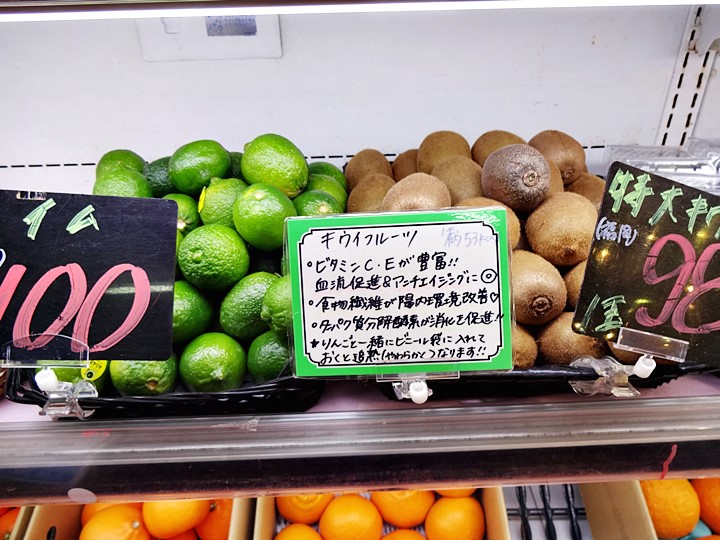 イム
100
キウイフルーツ 約53kcal
・ビタミンC・Eが豊富!!
血流促進&アンチエイジングに◎
・食物繊維が腸内環境改善♡
・タンパク質分解酵素が消化を促進!!
★りんごと一緒にビニール袋に入れて
おくと追熟(やわらかく)なります!!
特大
(福岡)
98